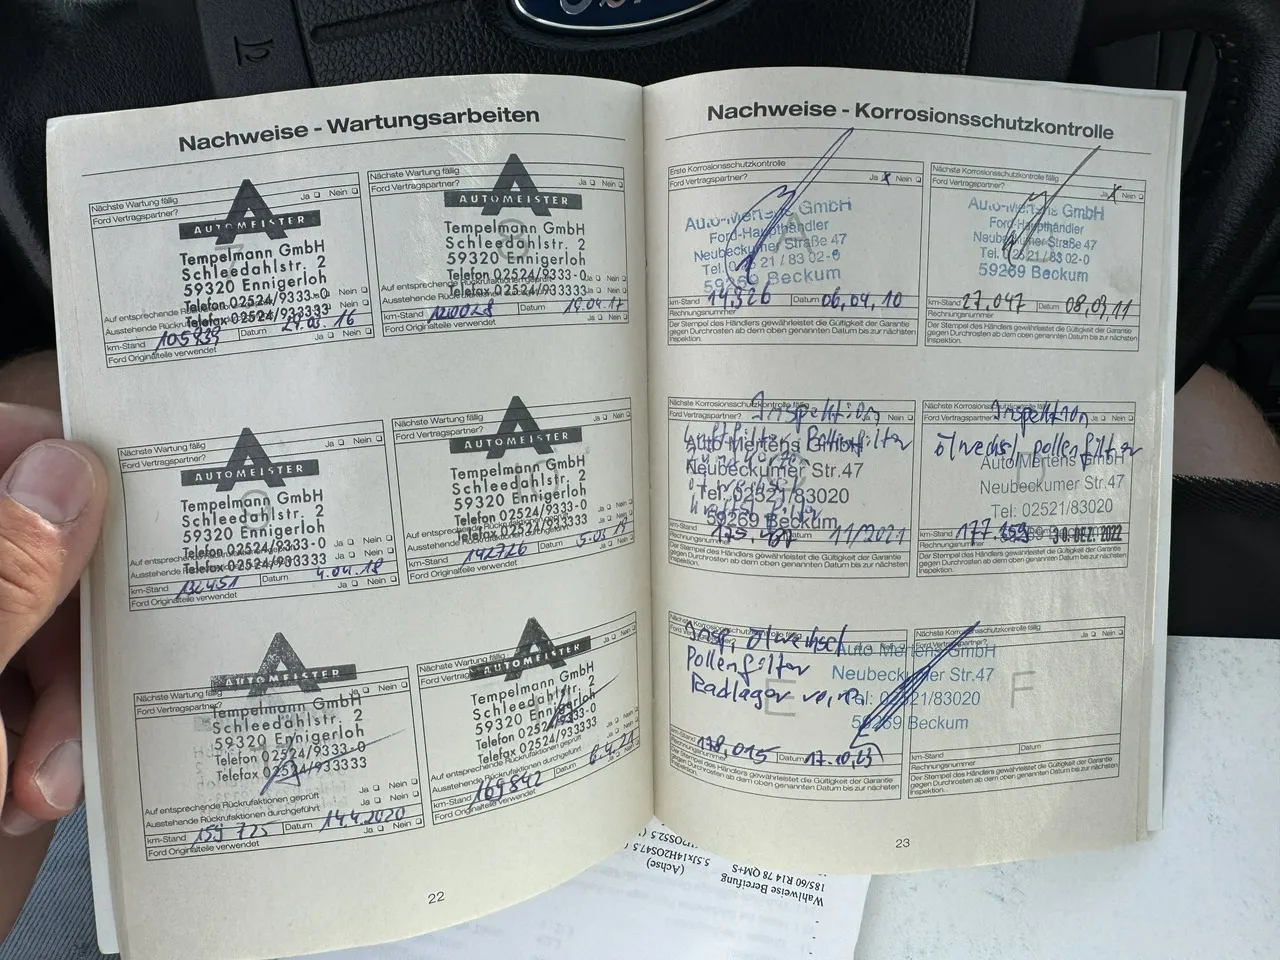 Nachweise - Wartungsarbeiten
Nächste Wartung fällig
Ford Vertragspartner? Ja Nein
AUTOMEISTER
Tempelmann GmbH
Schleedahlstr. 2
59320 Ennigerloh
Telefon 02524/9333-0
Telefax 02524/933333
Auf entsprechende
Ausstehende Ja Nein
km-Stand Datum 16
Ford Originalteile verwendet
Nächste Wartung fällig
Ford Vertragspartner? Ja Nein
AUTOMEISTER
Tempelmann GmbH
Schleedahlstr. 2
59320 Ennigerloh
Telefon 02524/9333-0
Telefax 02524/933333
Auf entsprechende
Ausstehende Ja Nein
km-Stand Datum 19.04.17
Ford Originalteile verwendet
Nächste Wartung fällig
Ford Vertragspartner?
AUTOMEISTER
Tempelmann GmbH
Schleedahlstr. 2
59320 Ennigerloh
Telefon 02524/9333-0
Telefax 02524/933333
Ja Nein
km-Stand 132451 Datum 4.04.18
Ford Originalteile verwendet
Nächste Wartung fällig
Ford Vertragspartner? Ja Nein
AUTOMEISTER
Tempelmann GmbH
Schleedahlstr. 2
59320 Ennigerloh
Telefon 02524/9333-0
Telefax 02524/933333
Ja Nein
km-Stand 142726 Datum 19
Ford Originalteile verwendet
Nächste Wartung fällig
Ford Vertragspartner? Ja Nein
AUTOMEISTER
Tempelmann GmbH
Schleedahlstr. 2
59320 Ennigerloh
Telefon 02524/9333-0
Telefax 02524/933333
Auf entsprechende Rückrufaktionen geprüft Ja Nein
Ausstehende Rückrufaktionen durchgeführt Ja Nein
km-Stand 159 725 Datum 14.4.2020
Ford Originalteile verwendet Ja Nein
Nächste Wartung fällig
Ford Vertragspartner? Ja Nein
AUTOMEISTER
Tempelmann GmbH
Schleedahlstr. 2
59320 Ennigerloh
Telefon 02524/9333-0
Telefax 02524/933333
Auf entsprechende Rückrufaktionen geprüft
Ausstehende Rückrufaktionen durchgeführt Ja Nein
km-Stand 169842 Datum 6.4.21
Ford Originalteile verwendet Ja Nein
22
Nachweise - Korrosionsschutzkontrolle
Erste Korrosionsschutzkontrolle
Ford Vertragspartner? Ja X Nein
Auto-Mertens GmbH
Ford-Haupthändler
Neubeckumer Straße 47
Tel. 02521/83 02-0
59269 Beckum
km-Stand 14,326 Datum 06,04,10
Rechnungsnummer
Der Stempel des Händlers gewährleistet die Gültigkeit der Garantie
gegen Durchrosten ab dem oben genannten Datum bis zur nächsten
Inspektion.
Nächste Korrosionsschutzkontrolle fällig
Ford Vertragspartner? Ja X Nein
Auto-Mertens GmbH
Ford-Haupthändler
Neubeckumer Straße 47
Tel. 02521/83 02-0
59269 Beckum
km-Stand 27,047 Datum 08,09,11
Rechnungsnummer
Der Stempel des Händlers gewährleistet die Gültigkeit der Garantie
gegen Durchrosten ab dem oben genannten Datum bis zur nächsten
Inspektion.
Nächste Korrosionsschutzkontrolle fällig
Inspektion
Ford Vertragspartner? Nein
Luftfilter Pollenfilter
Auto Mertens GmbH
Neubeckumer Str.47
Tel: 02521/83020
59269 Beckum
km-Stand Datum 11/2021
Rechnungsnummer
Der Stempel des Händlers gewährleistet die Gültigkeit der Garantie
gegen Durchrosten ab dem oben genannten Datum bis zur nächsten
Inspektion.
Nächste Korrosionsschutzkontrolle fällig
Inspektion
Ford Vertragspartner? Ja Nein
Ölwechsel, pollenfilter
Auto Mertens GmbH
Neubeckumer Str.47
Tel: 02521/83020
km-Stand 30. DEZ. 2022
Rechnungsnummer
Der Stempel des Händlers gewährleistet die Gültigkeit der Garantie
gegen Durchrosten ab dem oben genannten Datum bis zur nächsten
Inspektion.
Insp, Ölwechsel
Pollenfilter
E
km-Stand 178,015 Datum 17.10.23
Rechnungsnummer
Der Stempel des Händlers gewährleistet die Gültigkeit der Garantie
gegen Durchrosten ab dem oben genannten Datum bis zur nächsten
Inspektion.
Nächste Korrosionsschutzkontrolle fällig
Ja Nein
Auto Mertens GmbH
Neubeckumer Str.47
Tel: 02521/83020
59269 Beckum
F
km-Stand Datum
Rechnungsnummer
Der Stempel des Händlers gewährleistet die Gültigkeit der Garantie
gegen Durchrosten ab dem oben genannten Datum bis zur nächsten
Inspektion.
23
Wahlweise Bereifung
185/60 R14 78 QM+S
(Achse)
5.5Jx14H2OS47.5